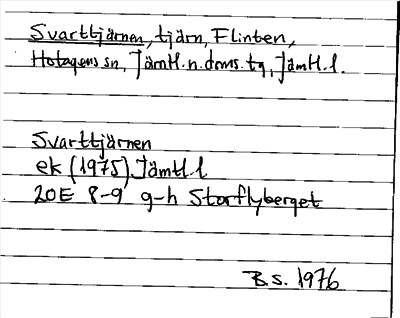 Svarttjärnen, tjärn, Flinten,
Hotagens sn, Jämtl.n.doms.tg, Jämtl.l.
Svarttjärnen
ek (1975) Jämtl l
20E 8-9 g-h Storflyberget
B.S. 1976